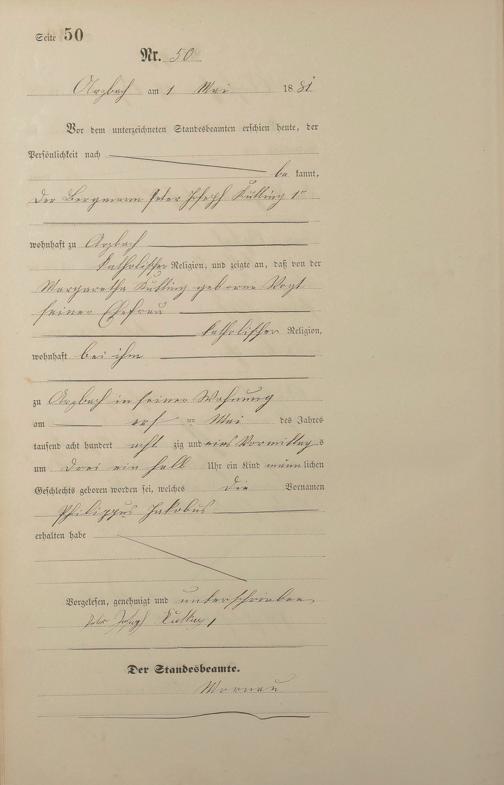 Seite 50
Nr. 50
Arzbach am 1 Mai 1881
Vor dem unterzeichneten Standesbeamten erschien heute, der
Persönlichkeit nach
be kannt,
der Bergmann Peter Joseph
wohnhaft zu Arzbach
katholischer Religion, und zeigte an, daß von der
Margaretha geborne Vogt
seiner Ehefrau
katholischer Religion,
wohnhaft bei ihm
zu Arzbach in seiner Wohnung
am Mai des Jahres
tausend acht hundert acht zig und eins Vormittags
um drei ein halb Uhr ein Kind männlichen
Geschlechts geboren worden sei, welches die Vornamen
Philippus Jakobus
erhalten habe
Vorgelesen, genehmigt und unterschrieben
Peter Joseph
Der Standesbeamte.